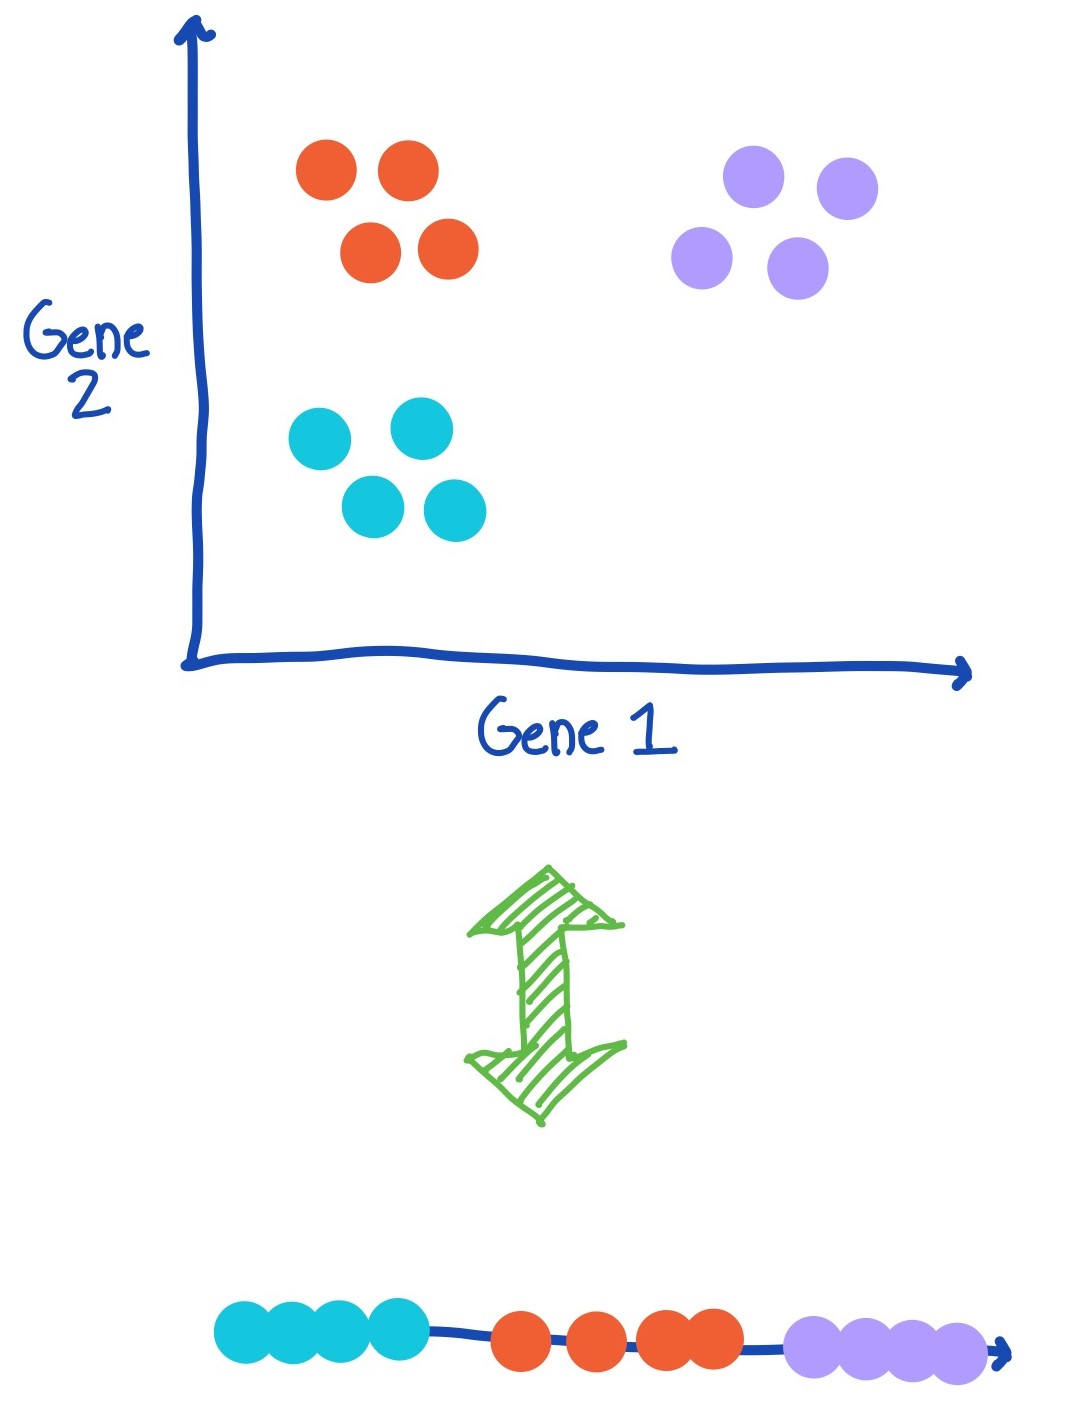 Gene
2
Gene 1